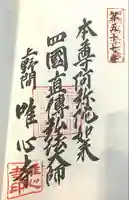 第五十七番
本尊阿弥陀如来
四國直傳弘法大師
上野間
唯心寺